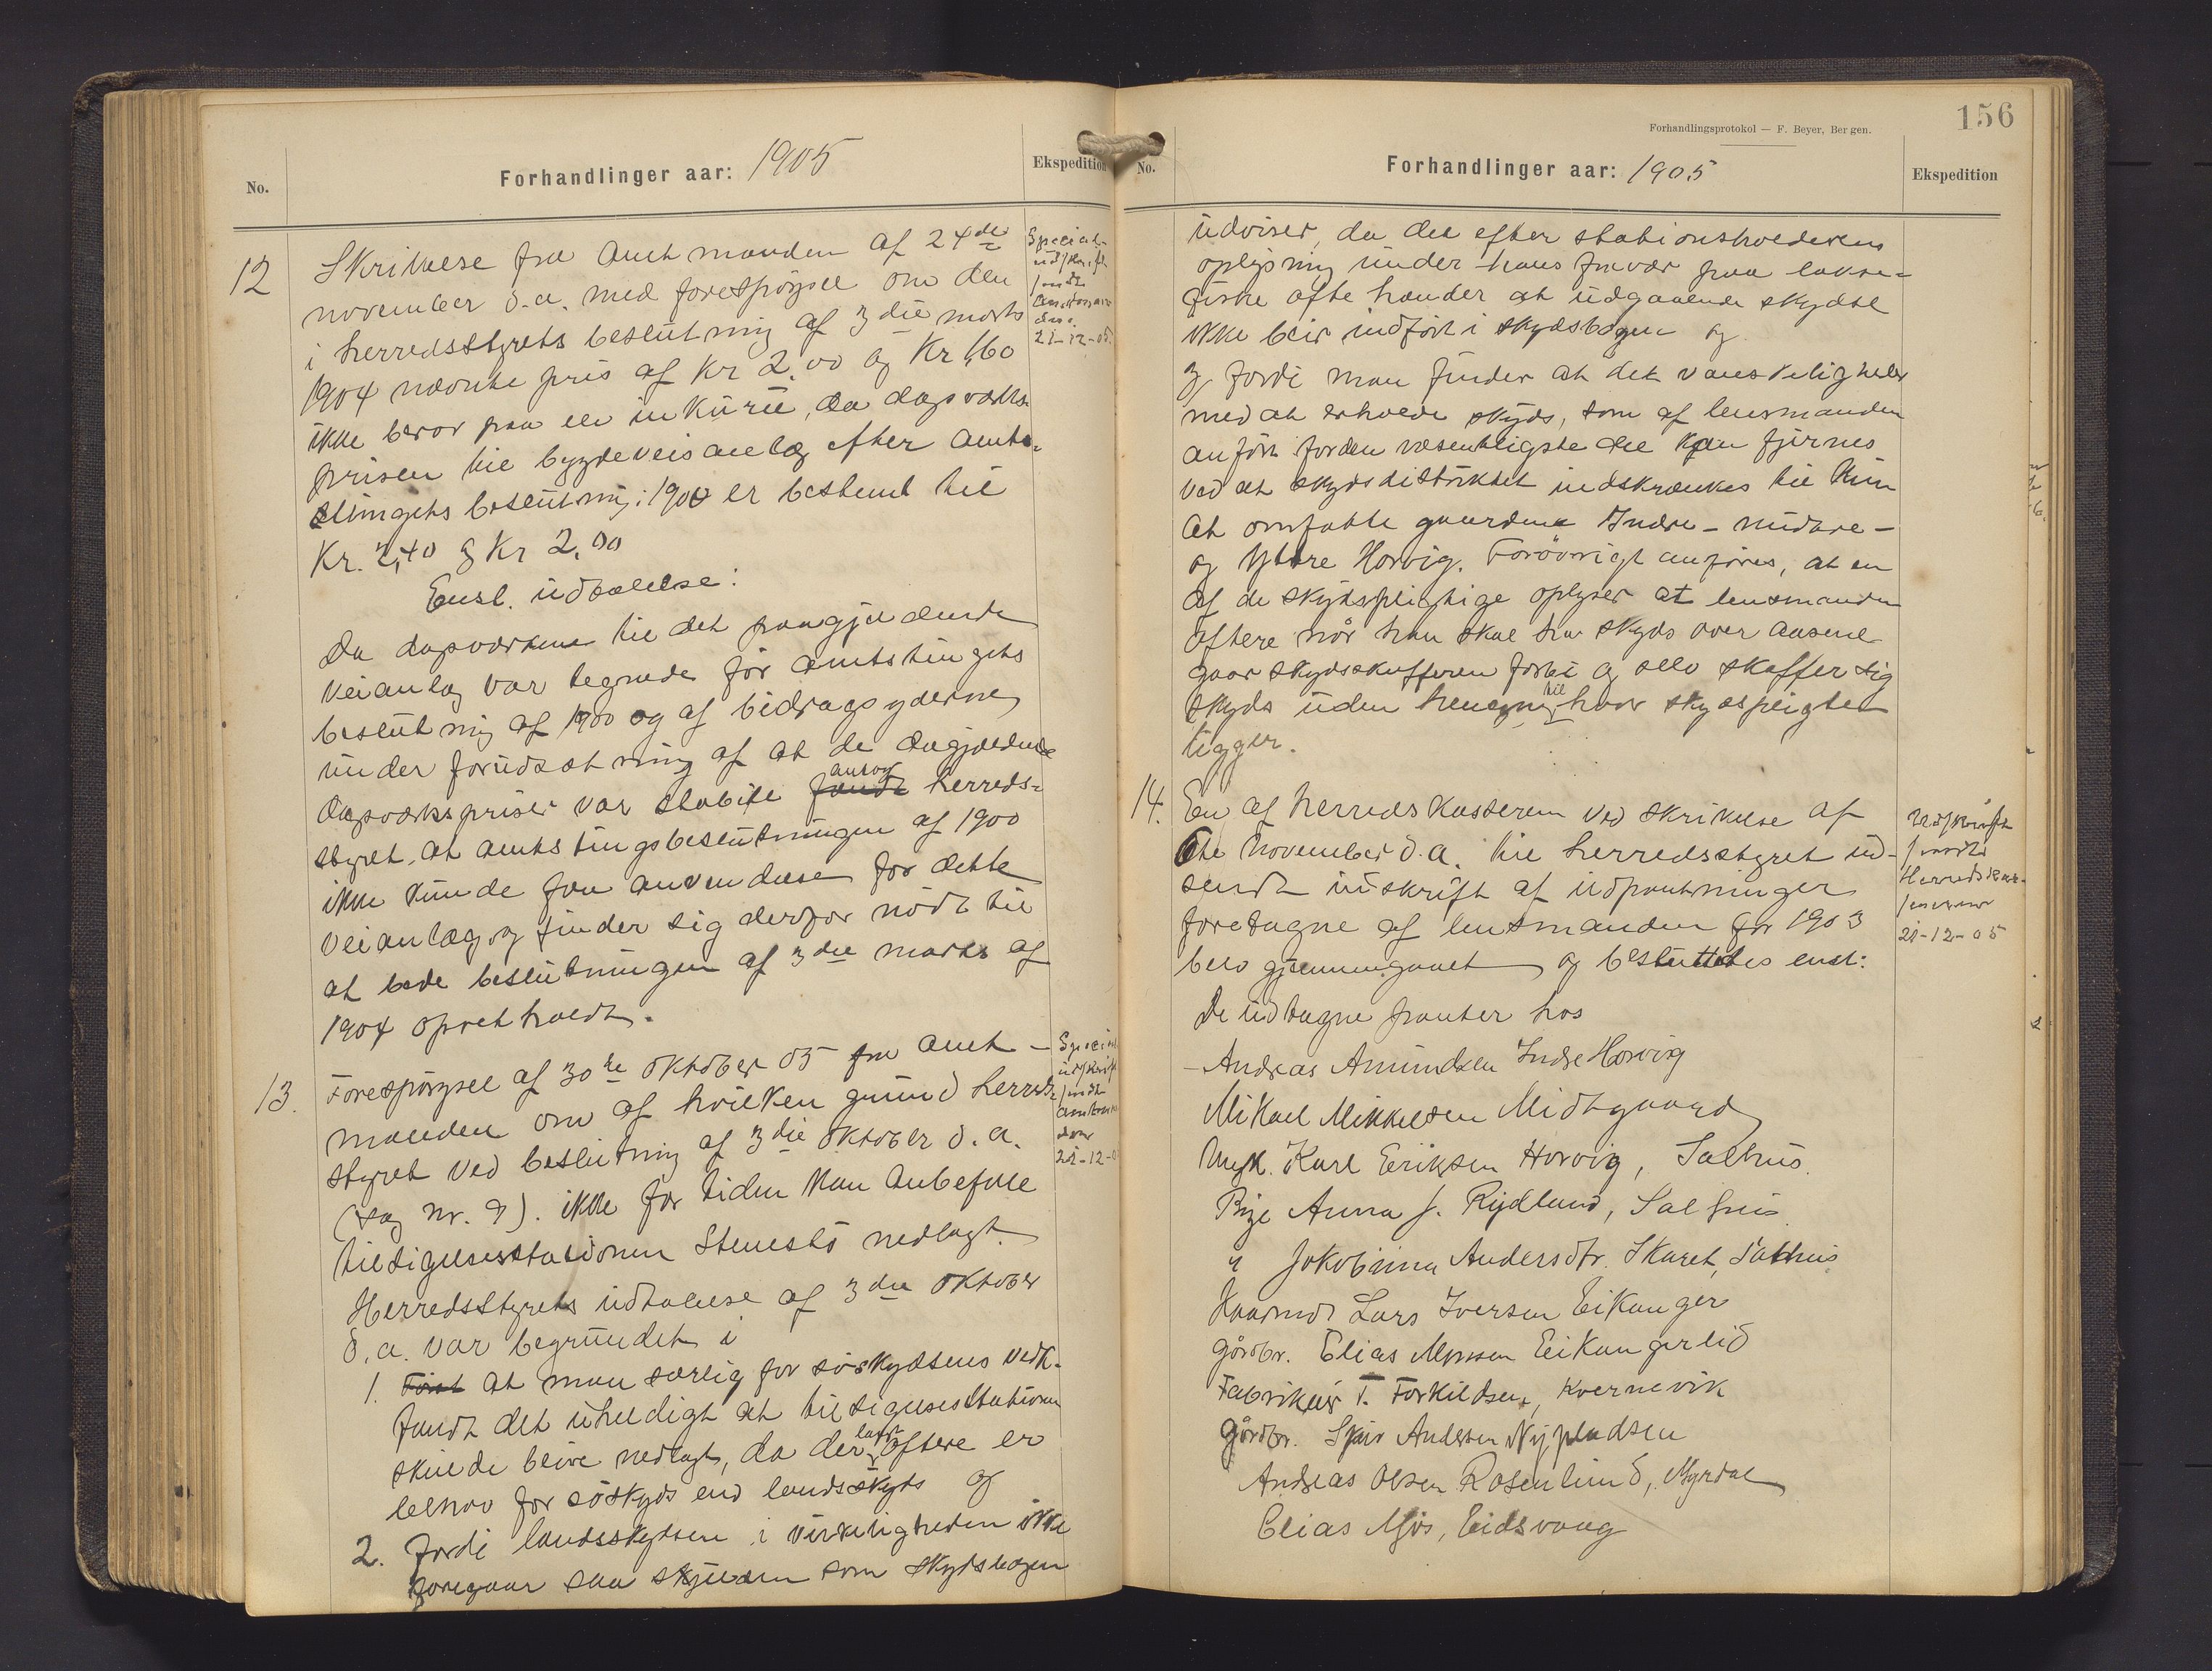 No.
Forhandlinger aar: 1905
Ekspedition
12
Skrivelse fra Amtmanden af 24de
november d.a. med forespörgsel om den
i herredsstyrets beslutning af 3die marts
1904 nævnte pris af Kr 2,00 og Kr 1,60
ikke beror paa en inkurie, da dagsværks-
prisen til bygdeveisanlæg efter Amts-
tingets beslutning i 1900 er bestemt til
Kr. 2,40 og Kr 2,00
Special-
udskrift
sendt
Amtman-
den
21-12-05.
Enst. udtalelse:
Da dagsværkene til det paagjældende
veianlæg var tegnede för amtstingets
beslutning af 1900 og af bidragsyderne
under forudsætning af at de dagjældende
dagsværkspriser var stabile fandt herreds-
ansaa
styret, at amtstingsbeslutningen af 1900
ikke kunde faa anvendelse for dette
veianlæg og finder sig derfor nödt til
at bede beslutningen af 3die marts af
1904 opretholdt.
13.
Forespörgsel af 30te oktober 05 fra Amt-
manden om af hvilken grund herreds-
styret ved beslutning af 3die oktober d.a.
(sag nr. 9). ikke for tiden kan anbefale
tilsigelsesstationen Stenestö nedlagt.
Special
udskrift
sendt
Amtman
den
21-12-0
Herredsstyrets udtalelse af 3die oktober
d.a. var begrundet i
1. Först at man særlig for söskydsens vedk.
fandt det uheldigt at tilsigelsesstationen
skulde blive nedlagt, da der oftere er
behov for söskyds end landsskyds og
2. fordi landsskydsen i virkeligheden ikke
foregaar saa sjelden som skydsbogen
156
Forhandlingsprotokol — F. Beyer, Bergen.
No.
Forhandlinger aar: 1905
Ekspedition
udviser, da det efter stationsholderens
oplysning under hans fravær paa lakse-
fiske ofte hænder at udgaaende skyds
ikke blir indfört i skydsbogen og
og fordi man finder at det vanskeligheder
med at erholde skyds, som af lensmanden
anfört for den væsentligste del kan fjernes
ved at skydsdistriktet indskrænkes til kun
at omfatte gaardene Indre- midtre-
og Ytre Horvig. Forövrigt anföres, at en
af de skydspligtige oplyser at lensmanden
oftere når han skal ha skyds over Aasene
gaar skydsskafferen forbi og selv skaffer sig
skyds uden hensyn til hvor skydspligten
ligger.
14.
En af herredskassereren ved skrivelse af
6te November d.a. til herredsstyret ud-
sendt udskrift af udpantninger
foretagne af lensmanden for 1903
blev gjennemgaaet og besluttedes enst:
Udskrift
sendt
Herredskas-
sereren
21-12-05
De udtagne panter hos
- Andreas Amundsen Indre Horvig
Mikael Mikkelsen Midtgaard
Ungk. Karl Eriksen Horvig, Salhus.
Pige Anna J. Rydland, Salhus
" Jokobinna Andersdtr. Skaret, Salhus
Husmd Lars Iversen Eikanger
gårdbr. Elias Monsen Eikangerlid
Fabrikeier T. Torkildsen, Kvernevik
gårdbr. Sjur Andersen Nypladsen
Andreas Olsen Rosenlund, Myrdal
Elias Mjös, Eidsvaag